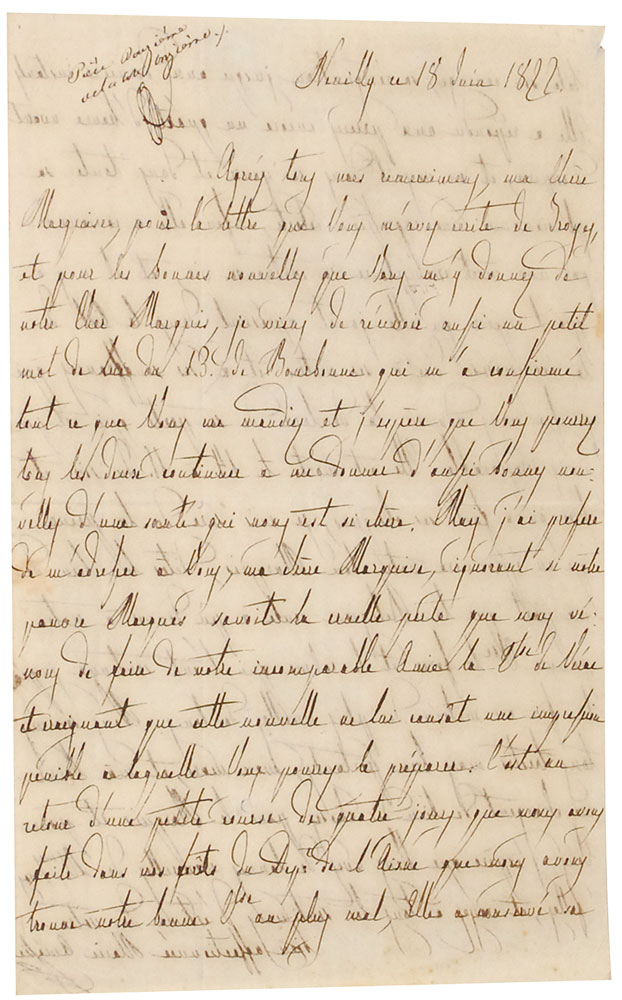 Pièce onzième
Neuilly ce 18 Juin 1822.
Agréez tous mes remercimens, ma chère
Marquise, pour la lettre que Vous m'avez écrite de Troyes,
et pour les bonnes nouvelles que Vous m'y donnez de
notre cher Marquis, je viens de recevoir aussi un petit
mot de lui du 13. de Bourbonne qui m'a confirmé
tout ce que Vous me mandiez et j'espère que Vous pourrez
tous les deux continuer à me donner d'aussi bonnes nou-
velles d'une santé qui nous est si chère. Mais j'ai préféré
de m'adresser à Vous, ma chère Marquise, ignorant si notre
pauvre Marquis savoit la cruelle perte que nous ve-
nons de faire de notre incomparable Amie la Vsse de Vérac
et craignant que cette nouvelle ne lui causât une impression
pénible à laquelle Vous pourrez le préparer. C'est au
retour d'une petite course de quatre jours que nous avons
faite dans nos forêts du Dépt. de l'Aisne que nous avons
trouvé notre bonne Vsse au plus mal, Elle a conservé sa